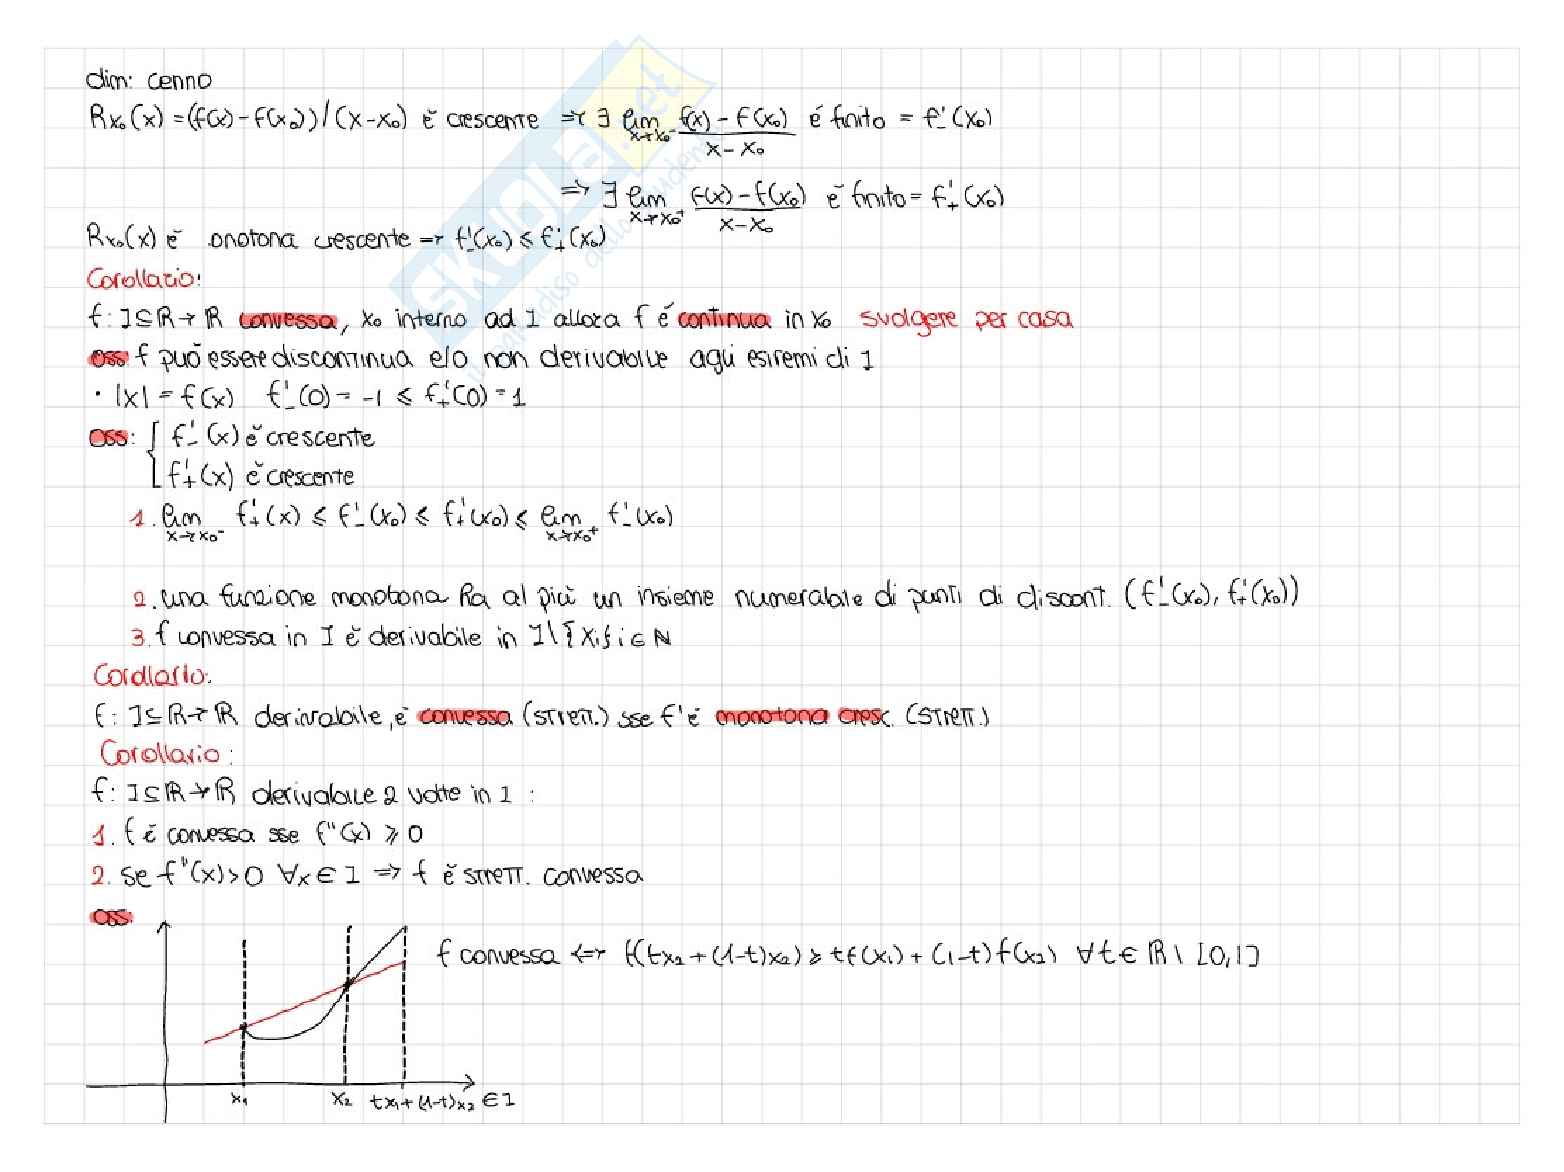 dim: cenno
Rx₀(x) = (f(x) - f(x₀))/(x-x₀) è crescente => ∃ lim x→x₀⁻ f(x) - f(x₀) / x - x₀ é finito = f'₋(x₀)
=> ∃ lim x→x₀⁺ f(x) - f(x₀) / x - x₀ è finito = f'₊(x₀)
Rx₀(x) è onotona crescente → f'₋(x₀) ≤ f'₊(x₀)
Corollario:
f: I⊆R→R convessa, x₀ interno ad I allora f é continua in x₀ svolgere per casa
oss: f può essere discontinua e/o non derivabile agli estremi di I
• |x| = f(x) f'₋(0) = -1 ≤ f'₊(0) = 1
oss: { f'₋(x) è crescente
f'₊(x) è crescente
1. lim x→x₀⁻ f'₊(x) ≤ f'₋(x₀) ≤ f'₊(x₀) ≤ lim x→x₀⁺ f'₋(x₀)
2. una funzione monotona ha al più un insieme numerabile di punti di discont. (f'₋(x₀), f'₊(x₀))
3. f convessa in I è derivabile in I\{xᵢ} i∈N
Corollario:
f: I⊆R→R derivabile, è convessa (strett.) sse f' è monotona cresc. (strett.)
Corollario:
f: I⊆R→R derivabile 2 volte in I :
1. f è convessa sse f"(x) ≥ 0
2. se f"(x)>0 ∀x∈I => f è strett. convessa
oss:
f convessa <=> f(tx₂+(1-t)x₂) ≥ tf(x₁) + (1-t)f(x₂) ∀t∈R\[0,1]
x₁ x₂ tx₁+(1-t)x₂ ∈I
SKUOLA.net
il paradiso dello studente